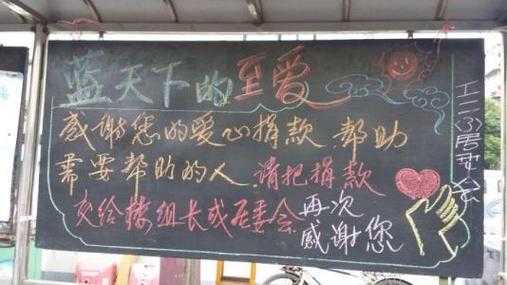 蓝天下的至爱
感谢您的爱心捐款 帮助
需要帮助的人 请把捐款
交给楼组长或居委会 再次
感谢您
工二(3)居委会